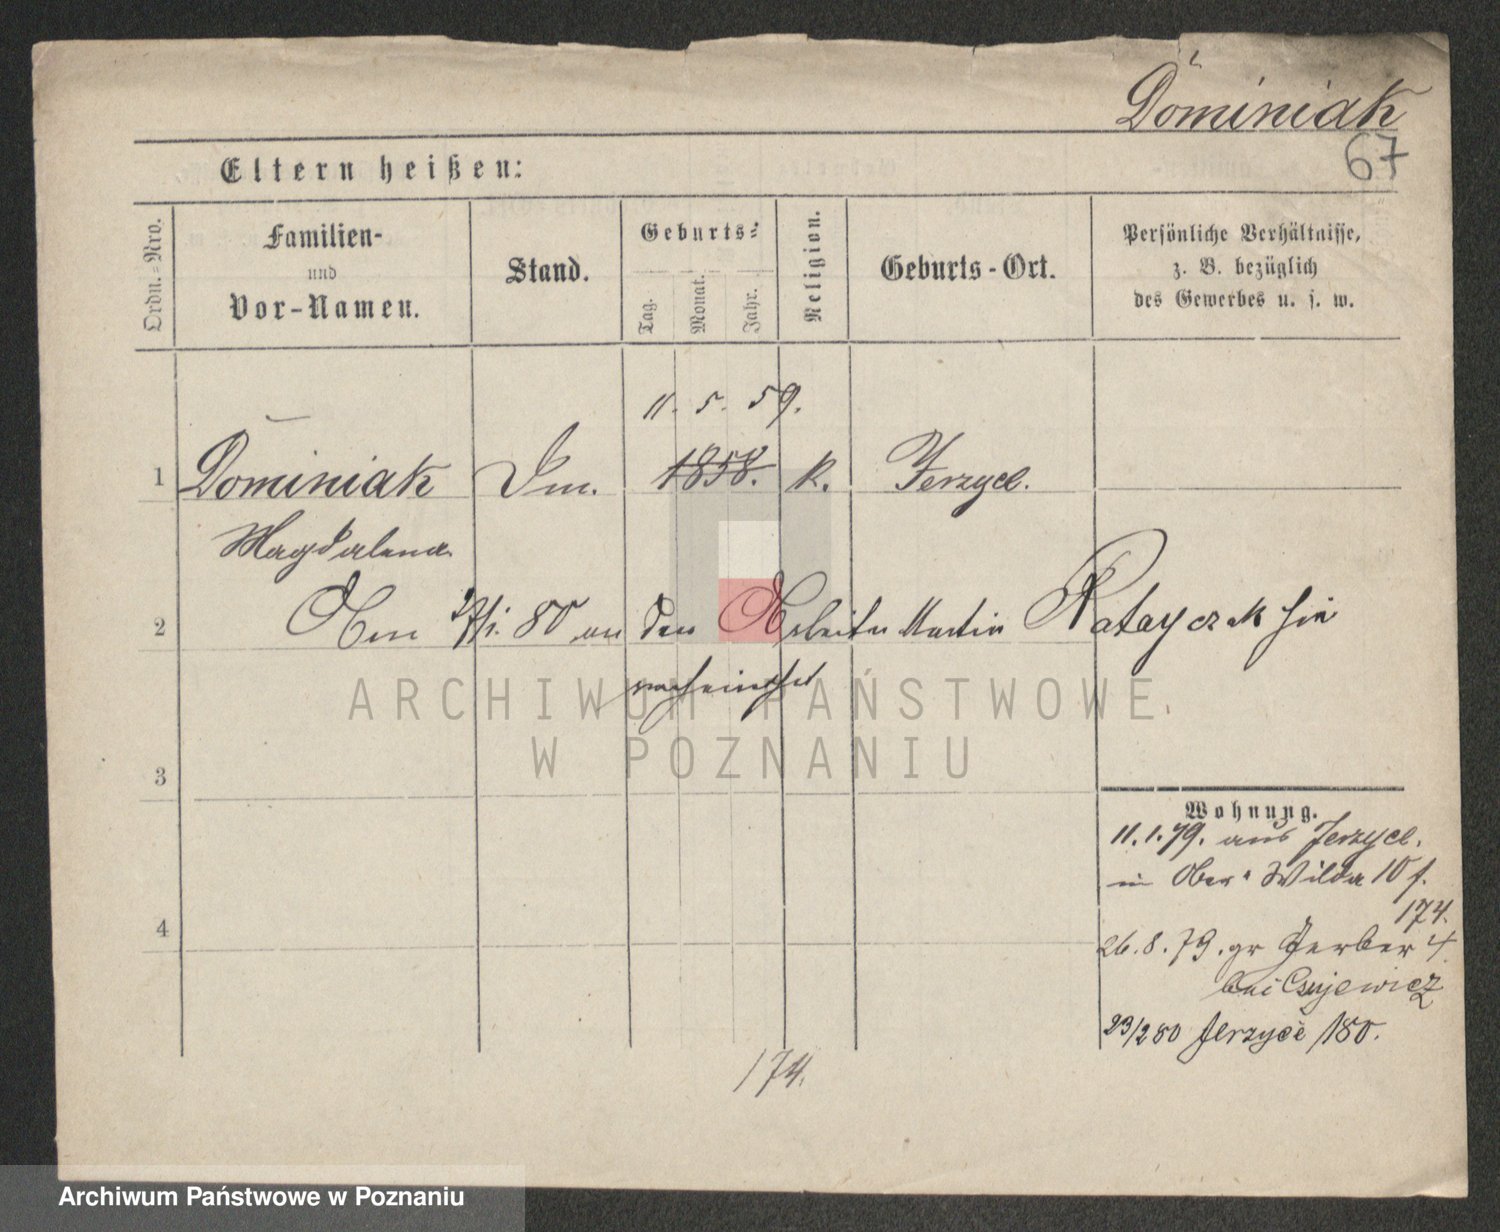 Dominiak
67
Eltern heißen:
Ordn.=Nro.
Familien-
und
Vor-Namen.
Stand.
Geburts=
Tag.
Monat.
Jahr.
Religion.
Geburts-Ort.
Persönliche Verhältnisse,
z. B. bezüglich
des Gewerbes u. s. w.
11. 5. 59.
1 Dominiak 1858. k. Jerzyce.
Magdalena
2 80 an den Arbeiter Martin Ratayczak hier
verheirathet
ARCHIWUM PAŃSTWOWE
W POZNANIU
3
Wohnung.
11.1.79. aus Jerzyce.
in Ober-Wilda 10 f.
174.
4
26.8.79. gr Gerber 4
bei
23/2 80 Jerzyce 180.
174.
Archiwum Państwowe w Poznaniu